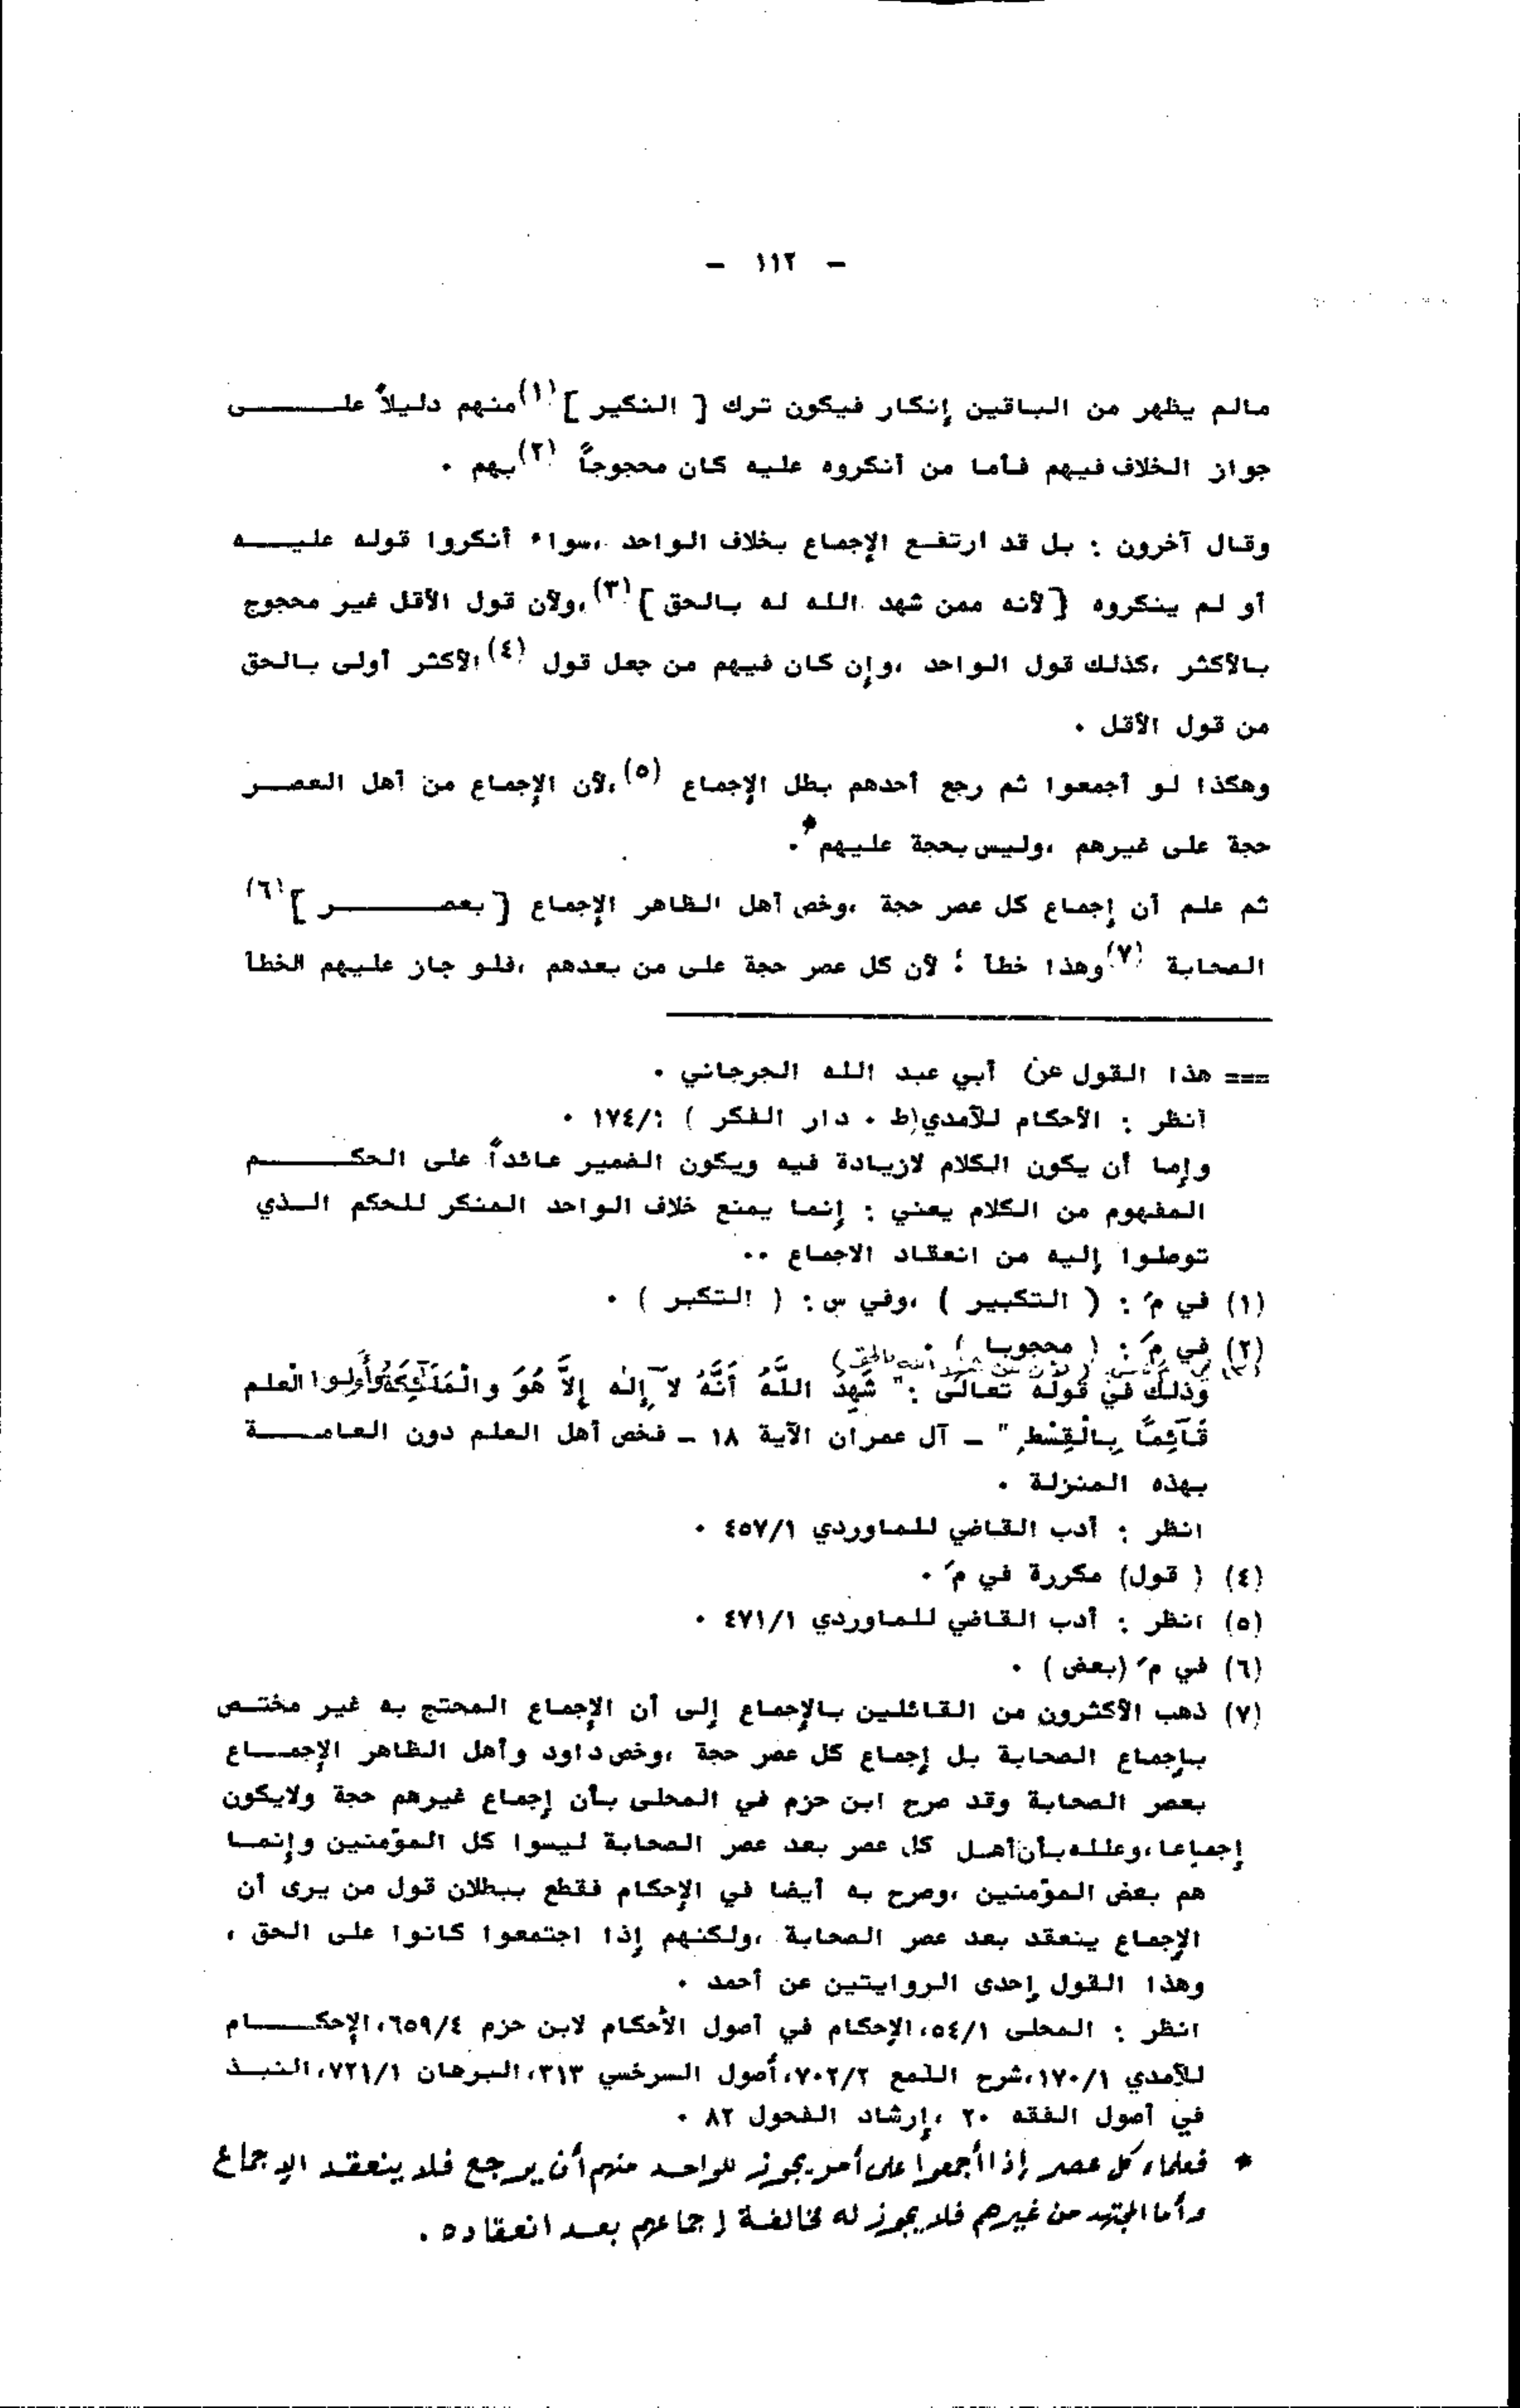 - ١١٢ -
مالم يظهر من الباقين إنكار فيكون ترك [ النكير ] (١) منهم دليلاً على
جواز الخلاف فيهم فأما من أنكروه عليه كان محجوجاً (٢) بهم .
وقال آخرون : بل قد ارتفع الإجماع بخلاف الواحد ،سواء أنكروا قوله عليه
أو لم ينكروه [ لأنه ممن شهد الله له بالحق ] (٣) ،ولأن قول الأقل غير محجوج
بالأكثر ،كذلك قول الواحد ،وإن كان فيهم من جعل قول (٤) الأكثر أولى بالحق
من قول الأقل .
وهكذا لو أجمعوا ثم رجع أحدهم بطل الإجماع (٥) ،لأن الإجماع من أهل العصر
حجة على غيرهم ،وليس بحجة عليهم * .
ثم علم أن إجماع كل عصر حجة ،وخص أهل الظاهر الإجماع [ بعصر ] (٦)
الصحابة (٧) وهذا خطأ ؛ لأن كل عصر حجة على من بعدهم ،فلو جاز عليهم الخطأ
=== هذا القول عن أبي عبد الله الجرجاني .
أنظر : الأحكام للآمدي (ط . دار الفكر ) ١٧٤/١ .
وإما أن يكون الكلام لازيادة فيه ويكون الضمير عائداً على الحكم
المفهوم من الكلام يعني : إنما يمنع خلاف الواحد المنكر للحكم الذي
توصلوا إليه من انعقاد الاجماع ..
(١) في م َ : ( التكبير ) ،وفي س : ( التكبر ) .
(٢) في م َ : ( محجوبا ) .
(٣) في س ( لأن من شهد الله بالحق )
وذلك في قوله تعالى : " شَهِدَ اللَّهُ أَنَّهُ لآ إِلَٰه إِلاَّ هُوَ والْمَلَٰٓئِكَةُ وأُولوا العلم
قَآئِمًا بِالْقِسْطِ " - آل عمران الآية ١٨ - فخص أهل العلم دون العامة
بهذه المنزلة .
انظر : أدب القاضي للماوردي ٤٥٧/١ .
(٤) ( قول) مكررة في م َ .
(٥) انظر : أدب القاضي للماوردي ٤٧١/١ .
(٦) في م َ (بعض ) .
(٧) ذهب الأكثرون من القائلين بالإجماع إلى أن الإجماع المحتج به غير مختص
بإجماع الصحابة بل إجماع كل عصر حجة ،وخص داود وأهل الظاهر الإجماع
بعصر الصحابة وقد صرح ابن حزم في المحلى بأن إجماع غيرهم حجة ولايكون
إجماعا ،وعلله بأن أهل كل عصر بعد عصر الصحابة ليسوا كل المؤمنين وإنما
هم بعض المؤمنين ،وصرح به أيضا في الإحكام فقطع ببطلان قول من يرى أن
الإجماع ينعقد بعد عصر الصحابة ،ولكنهم إذا اجتمعوا كانوا على الحق ،
وهذا القول إحدى الروايتين عن أحمد .
انظر : المحلى ٥٤/١ ،الإحكام في أصول الأحكام لابن حزم ٦٥٩/٤ ،الإحكام
للآمدي ١٧٠/١ ،شرح اللمع ٧٠٢/٢ ،أصول السرخسي ٣١٣ ،البرهان ٧٢١/١ ،النبذ
في أصول الفقه ٢٠ ،إرشاد الفحول ٨٢ .
* فعلماء كل عصر إذا أجمعوا على أمر يجوز للواحد منهم أن يرجع فلا ينعقد الإجماع
وأما المجتهد من غيرهم فلا يجوز له مخالفة إجماعهم بعد انعقاده .